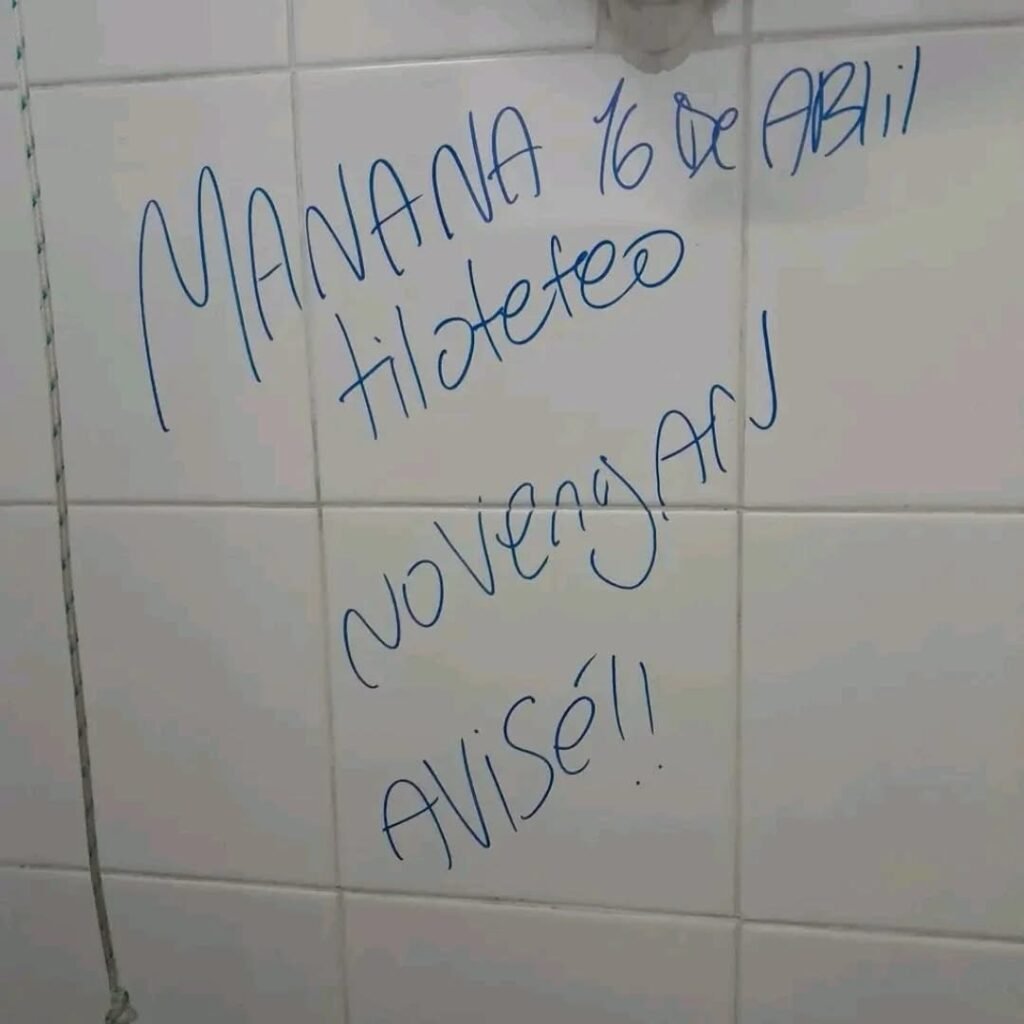 MANANA 16 De ABlil
tiloteteo
NO VengAn
AViSé!!